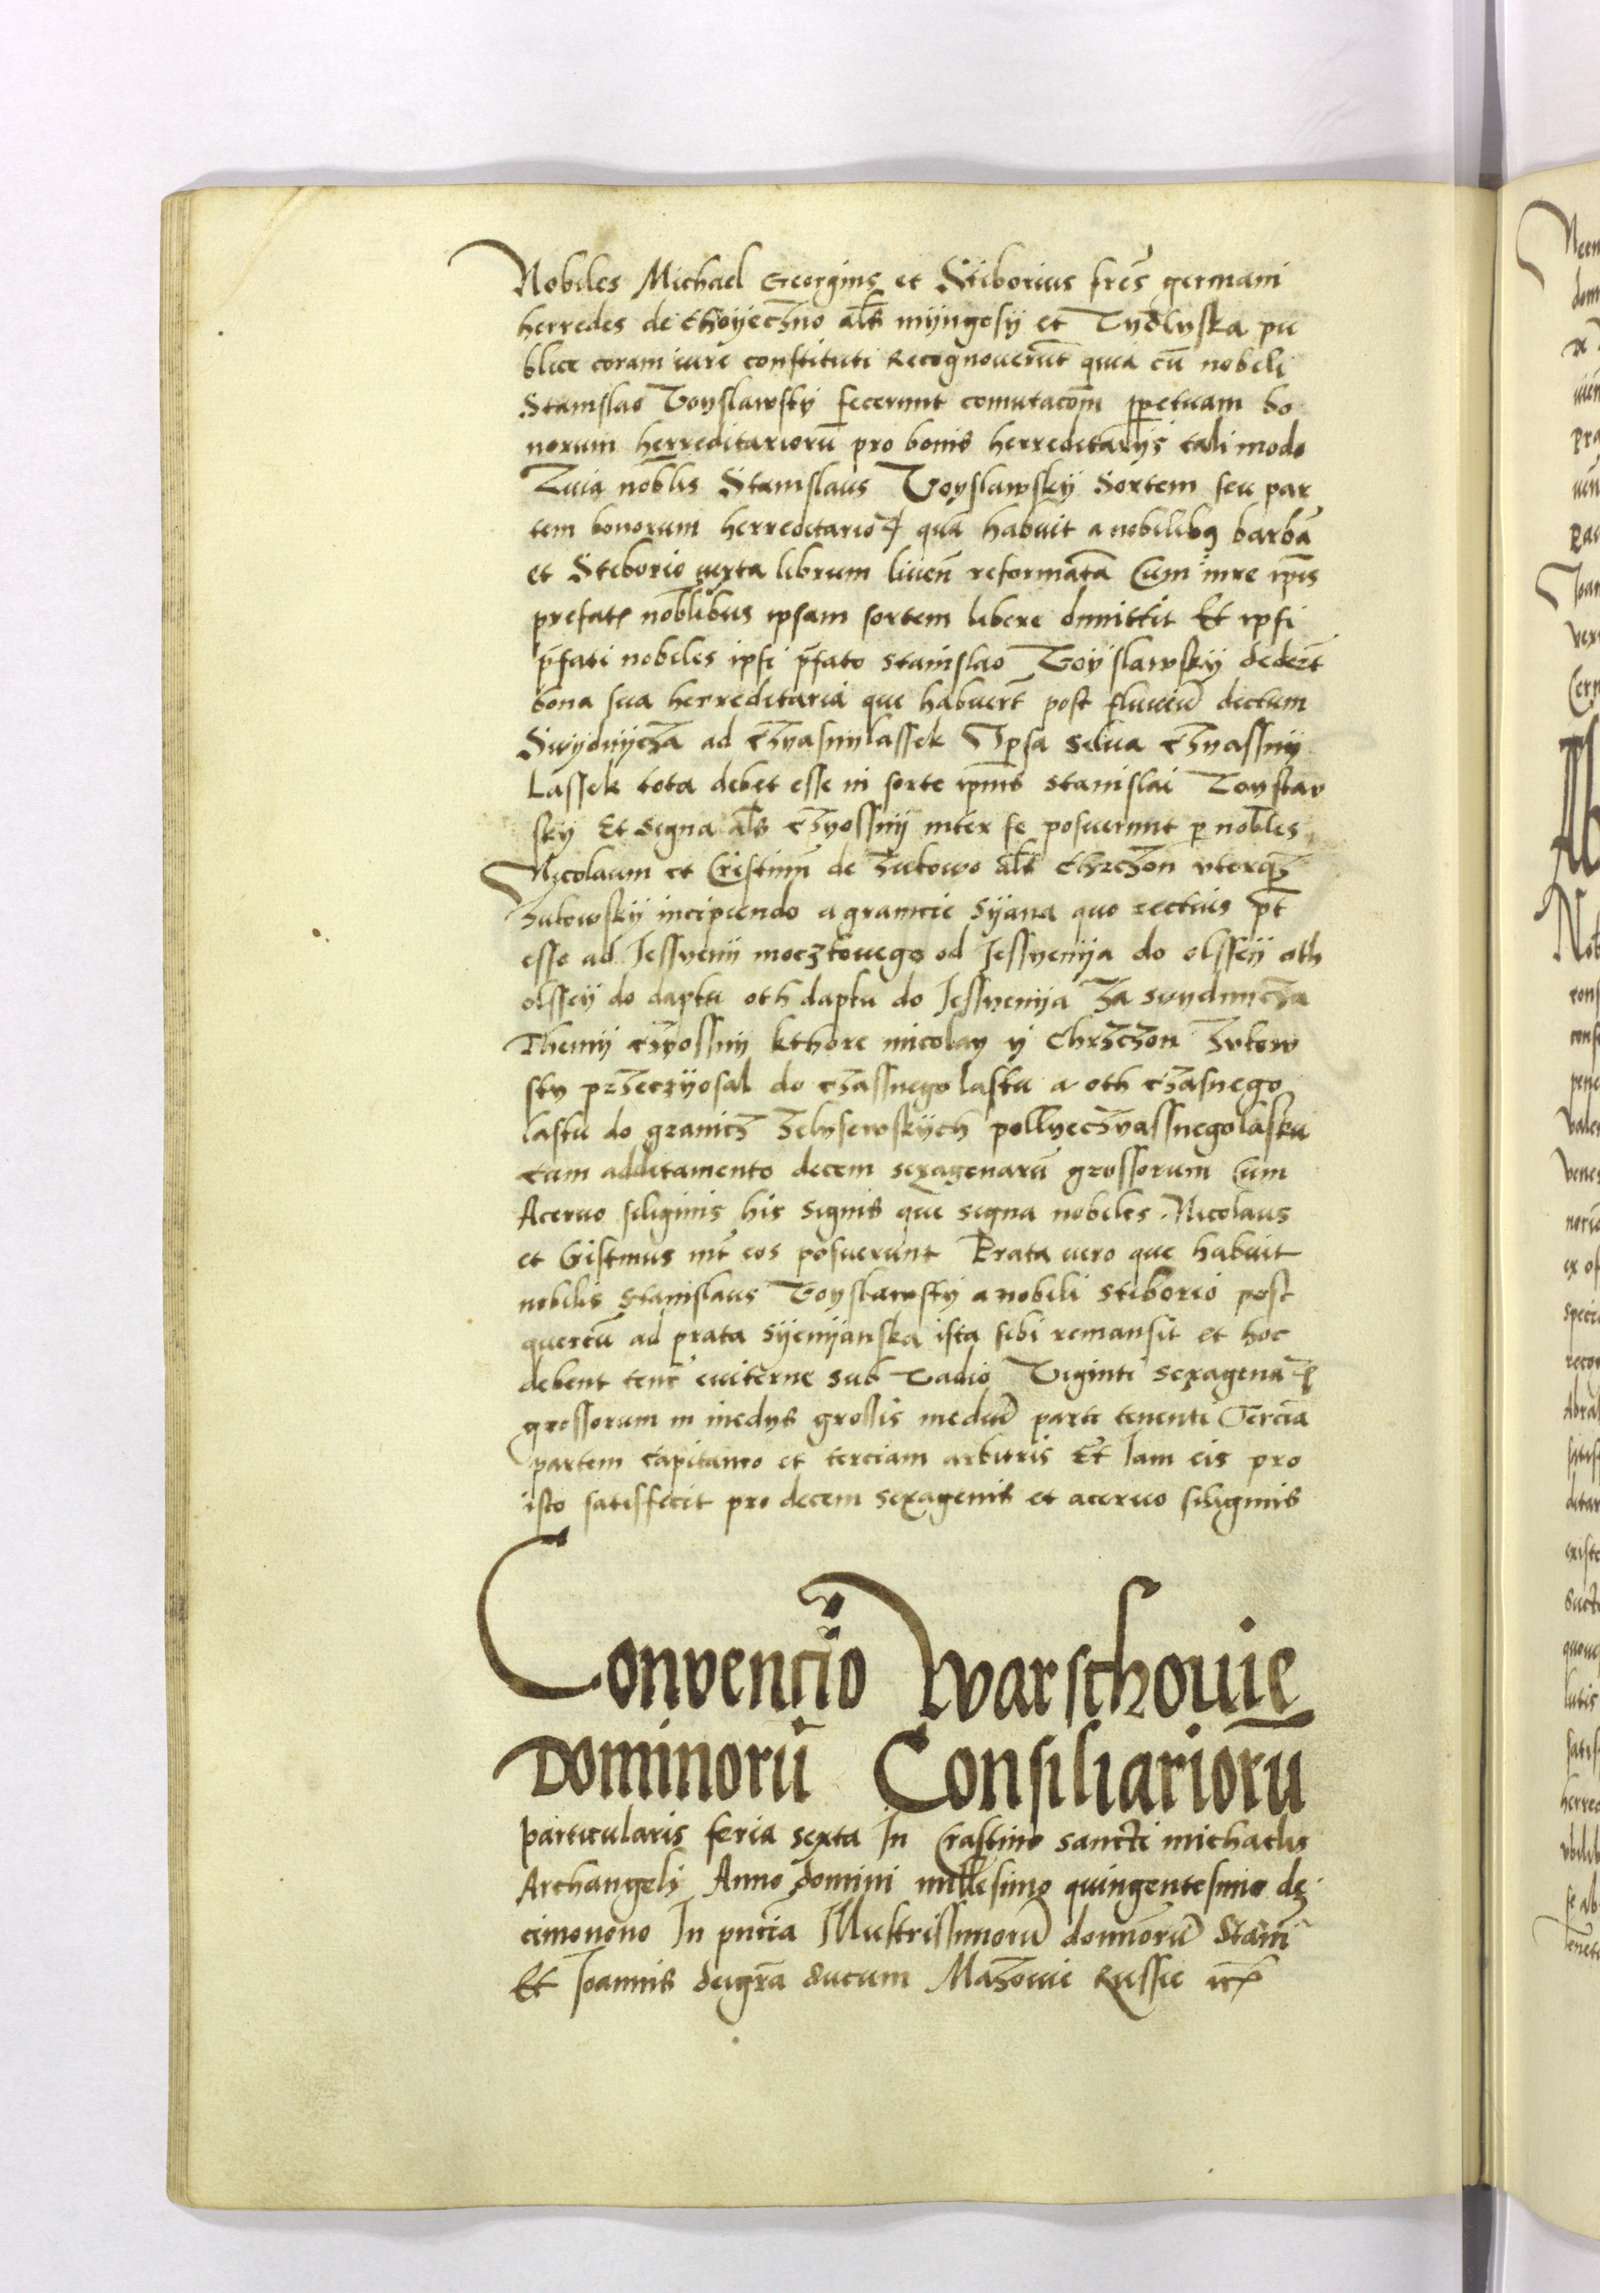 Nobiles Michael Georgius et Stiborius fres germani
herredes de Choyeczno als myngosy et Vydlyska pu
blice coram iure constituti Recognoverut quia cu nobili
Stanislao Voyslawsky fecerunt comutacom ppetuam bo
norum herreditarioru pro bonis herreditarys tali modo
Quia noblis Stanislaus Voyslawsky Sortem seu par
tem bonorum herreditario qua habuit a nobilibq barba
et Stiborio iuxta librum liven reformata Cum iure ipis
prefat noblibus ipsam sortem libere dimittit Et ipsi
pfati nobiles ipsi pfato stanislao Voyslawsky dedert
bona sua herreditaria que habuert post fluviu dictum
Swydnycza ad czyasnylassek Ipsa silua czyassny
Lassek tota debet esse in sorte ipius stanislai Voyslaw
sky Et Signa als czyossny inter se posuerunt p nobles
Nicolaum et Cristinu de zukowo als Chrczon vterqz
zukowsky incipiendo a granicie Syana quo rectius pt
esse ad Jessyeny moczkovego od Jessyenya do olssey oth
olssey do daptu oth daptu do Jessyenya za swydnicza
Themy czyossny kthore micolay y Chrzczon zukow
sky przeczyosal do czassnego lasku a oth czasnego
lasku do granicz zelysewskych pollyeczyassnegolasku
cum additamento decem sexagenaru grossorum Cum
Aceruo siliginis his signis que signa nobiles Nicolaus
et Cristinus int eos posuerunt Prata uero que habuit
nobilis Stanislaus Voyslawsky a nobili Stiborio post
quercu ad prata syenyanska ista sibi remansit et hoc
debent tene euiterne sub Vadio Viginti sexagena
grossorum in medys grossis mediu parti tenenti Tercia
partem capitaneo et terciam arbitris Et Iam eis pro
isto satisfecit pro decem sexagenis et aceruo siliginis
Conventio Warschouie
Dominoru Consiliarioru
particularis feria sexta In Crastino sancti michaelis
Archangeli Anno domini millesimo quingentesimo de
cimonono In pncia Illustrissimoru dominoru Stani
Et Joannis deigra ducum Mazouie Russie etc